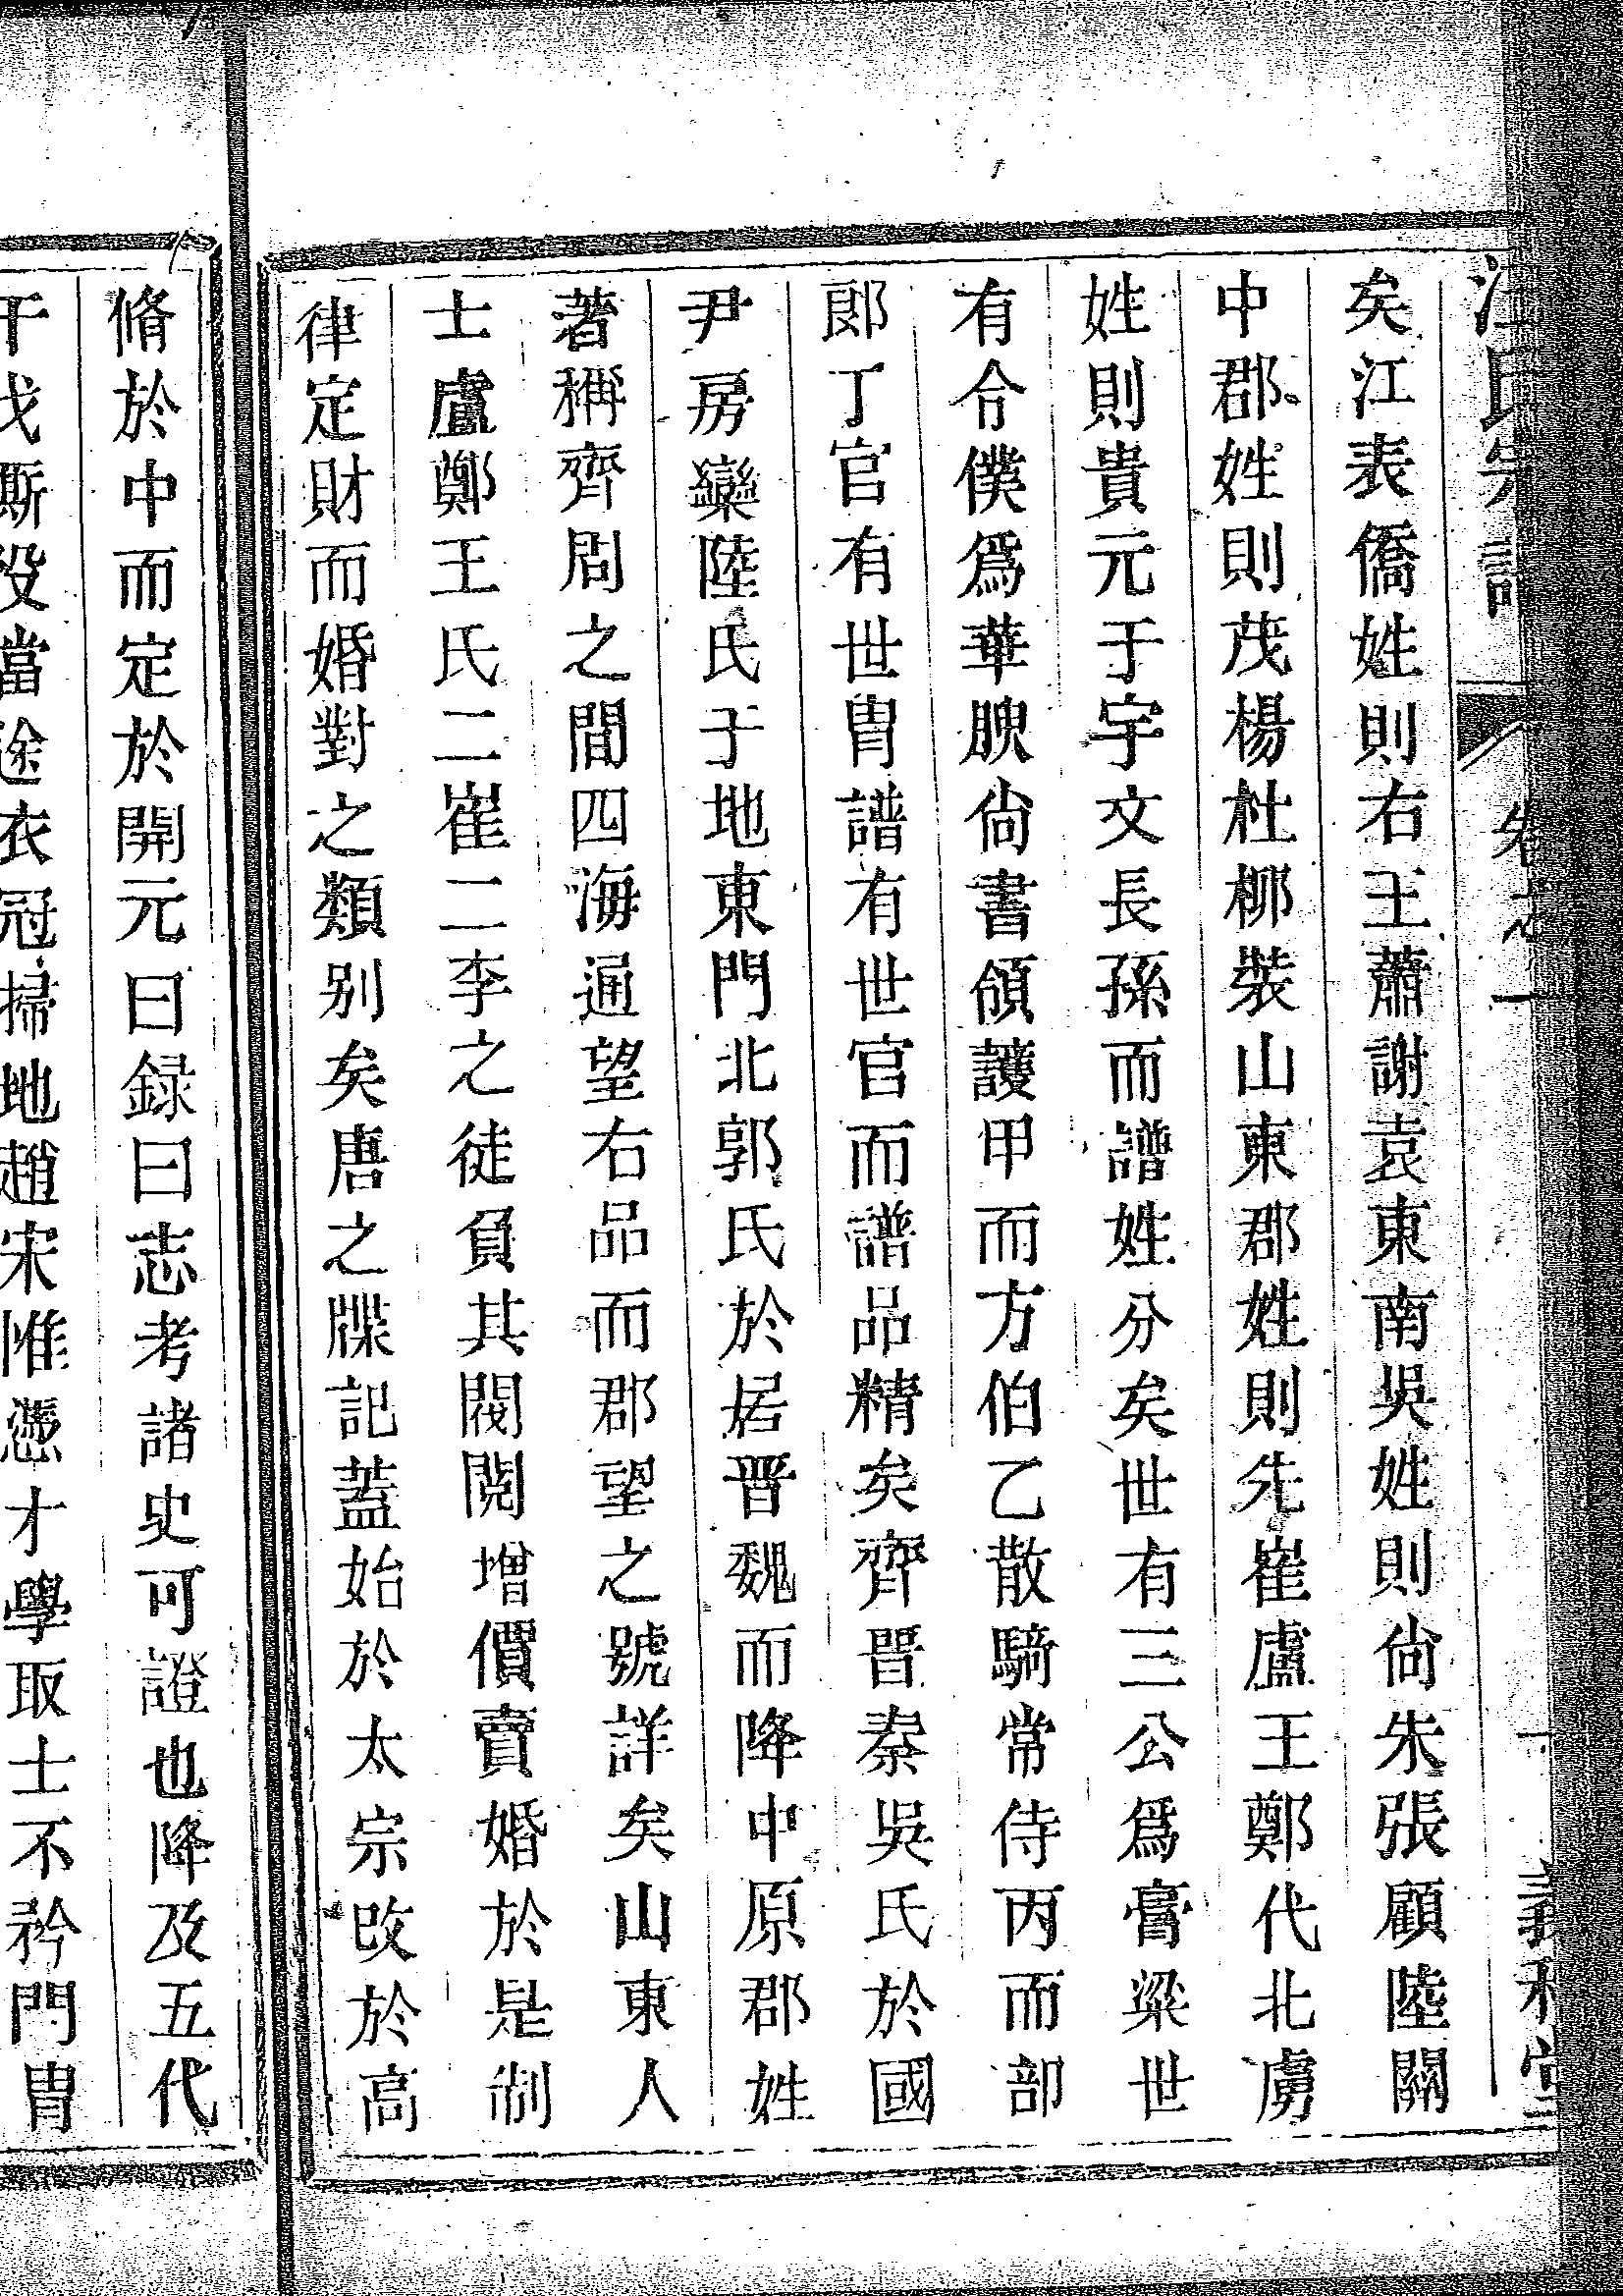 氏宗譜 卷之一
矣江表僑姓則右王蕭謝袁東南吳姓則尙朱張顧陸關
中郡姓則茂楊杜柳裴山東郡姓則先崔盧王鄭代北虜
姓則貴元于宇文長孫而譜姓分矣世有三公爲膏粱世
有令僕爲華腴尙書領護甲而方伯乙散騎常侍丙而部
郎丁官有世冑譜有世官而譜品精矣齊晋秦吳氏於國
尹房欒陸氏于地東門北郭氏於居晋魏而降中原郡姓
著稱齊周之間四海通望右品而郡望之號詳矣山東人
士盧鄭王氏二崔二李之徒負其閥閱增價賣婚於是制
律定財而婚對之類別矣唐之牒記蓋始於太宗改於高
脩於中而定於開元曰録曰志考諸史可證也降及五代
干戈厮役當途衣冠掃地趙宋惟憑才學取士不矜門冑